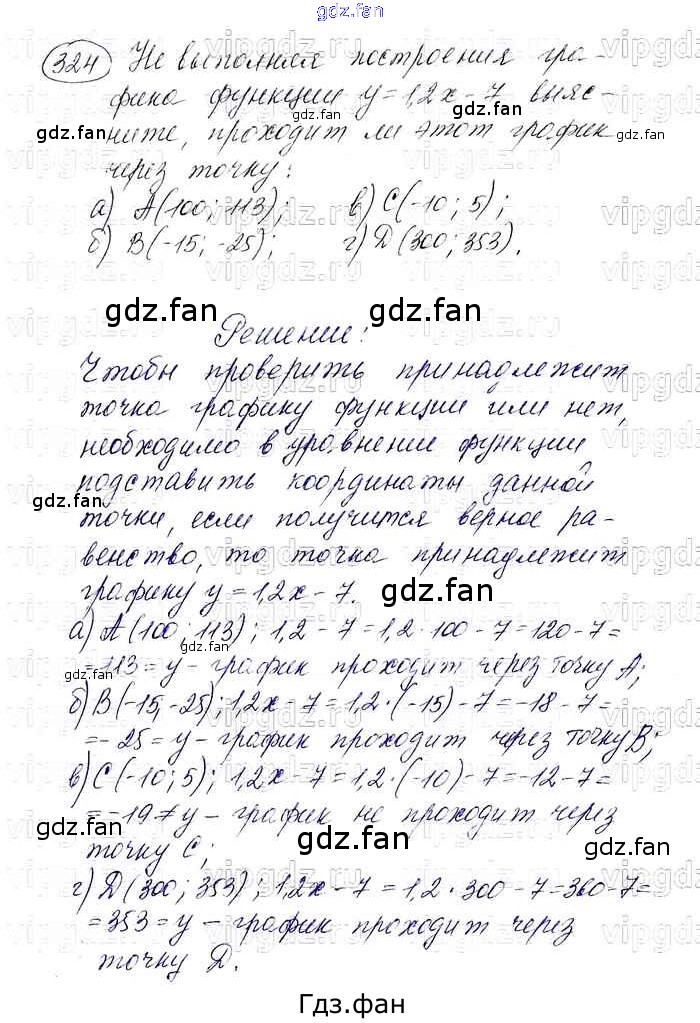 gdz.fan
324 Не выполняя построения гра-
фика функции y = 1,2x - 7 выяс-
ните, проходит ли этот график
через точку:
а) A(100; 113); в) C(-10; 5);
б) B(-15; -25); г) D(300; 353).
Решение:
Чтобы проверить принадлежит
точка графику функции или нет,
необходимо в уравнение функции
подставить координаты данной
точки, если получится верное ра-
венство, то точка принадлежит
графику y = 1,2x - 7.
а) A(100; 113); 1,2 - 7 = 1,2 · 100 - 7 = 120 - 7 =
= 113 = y - график проходит через точку A;
б) B(-15; -25); 1,2x - 7 = 1,2 · (-15) - 7 = -18 - 7 =
= -25 = y - график проходит через точку B;
в) C(-10; 5); 1,2x - 7 = 1,2 · (-10) - 7 = -12 - 7 =
= -19 ≠ y - график не проходит через
точку C;
г) D(300; 353); 1,2x - 7 = 1,2 · 300 - 7 = 360 - 7 =
= 353 = y - график проходит через
точку D.
Гдз.фан